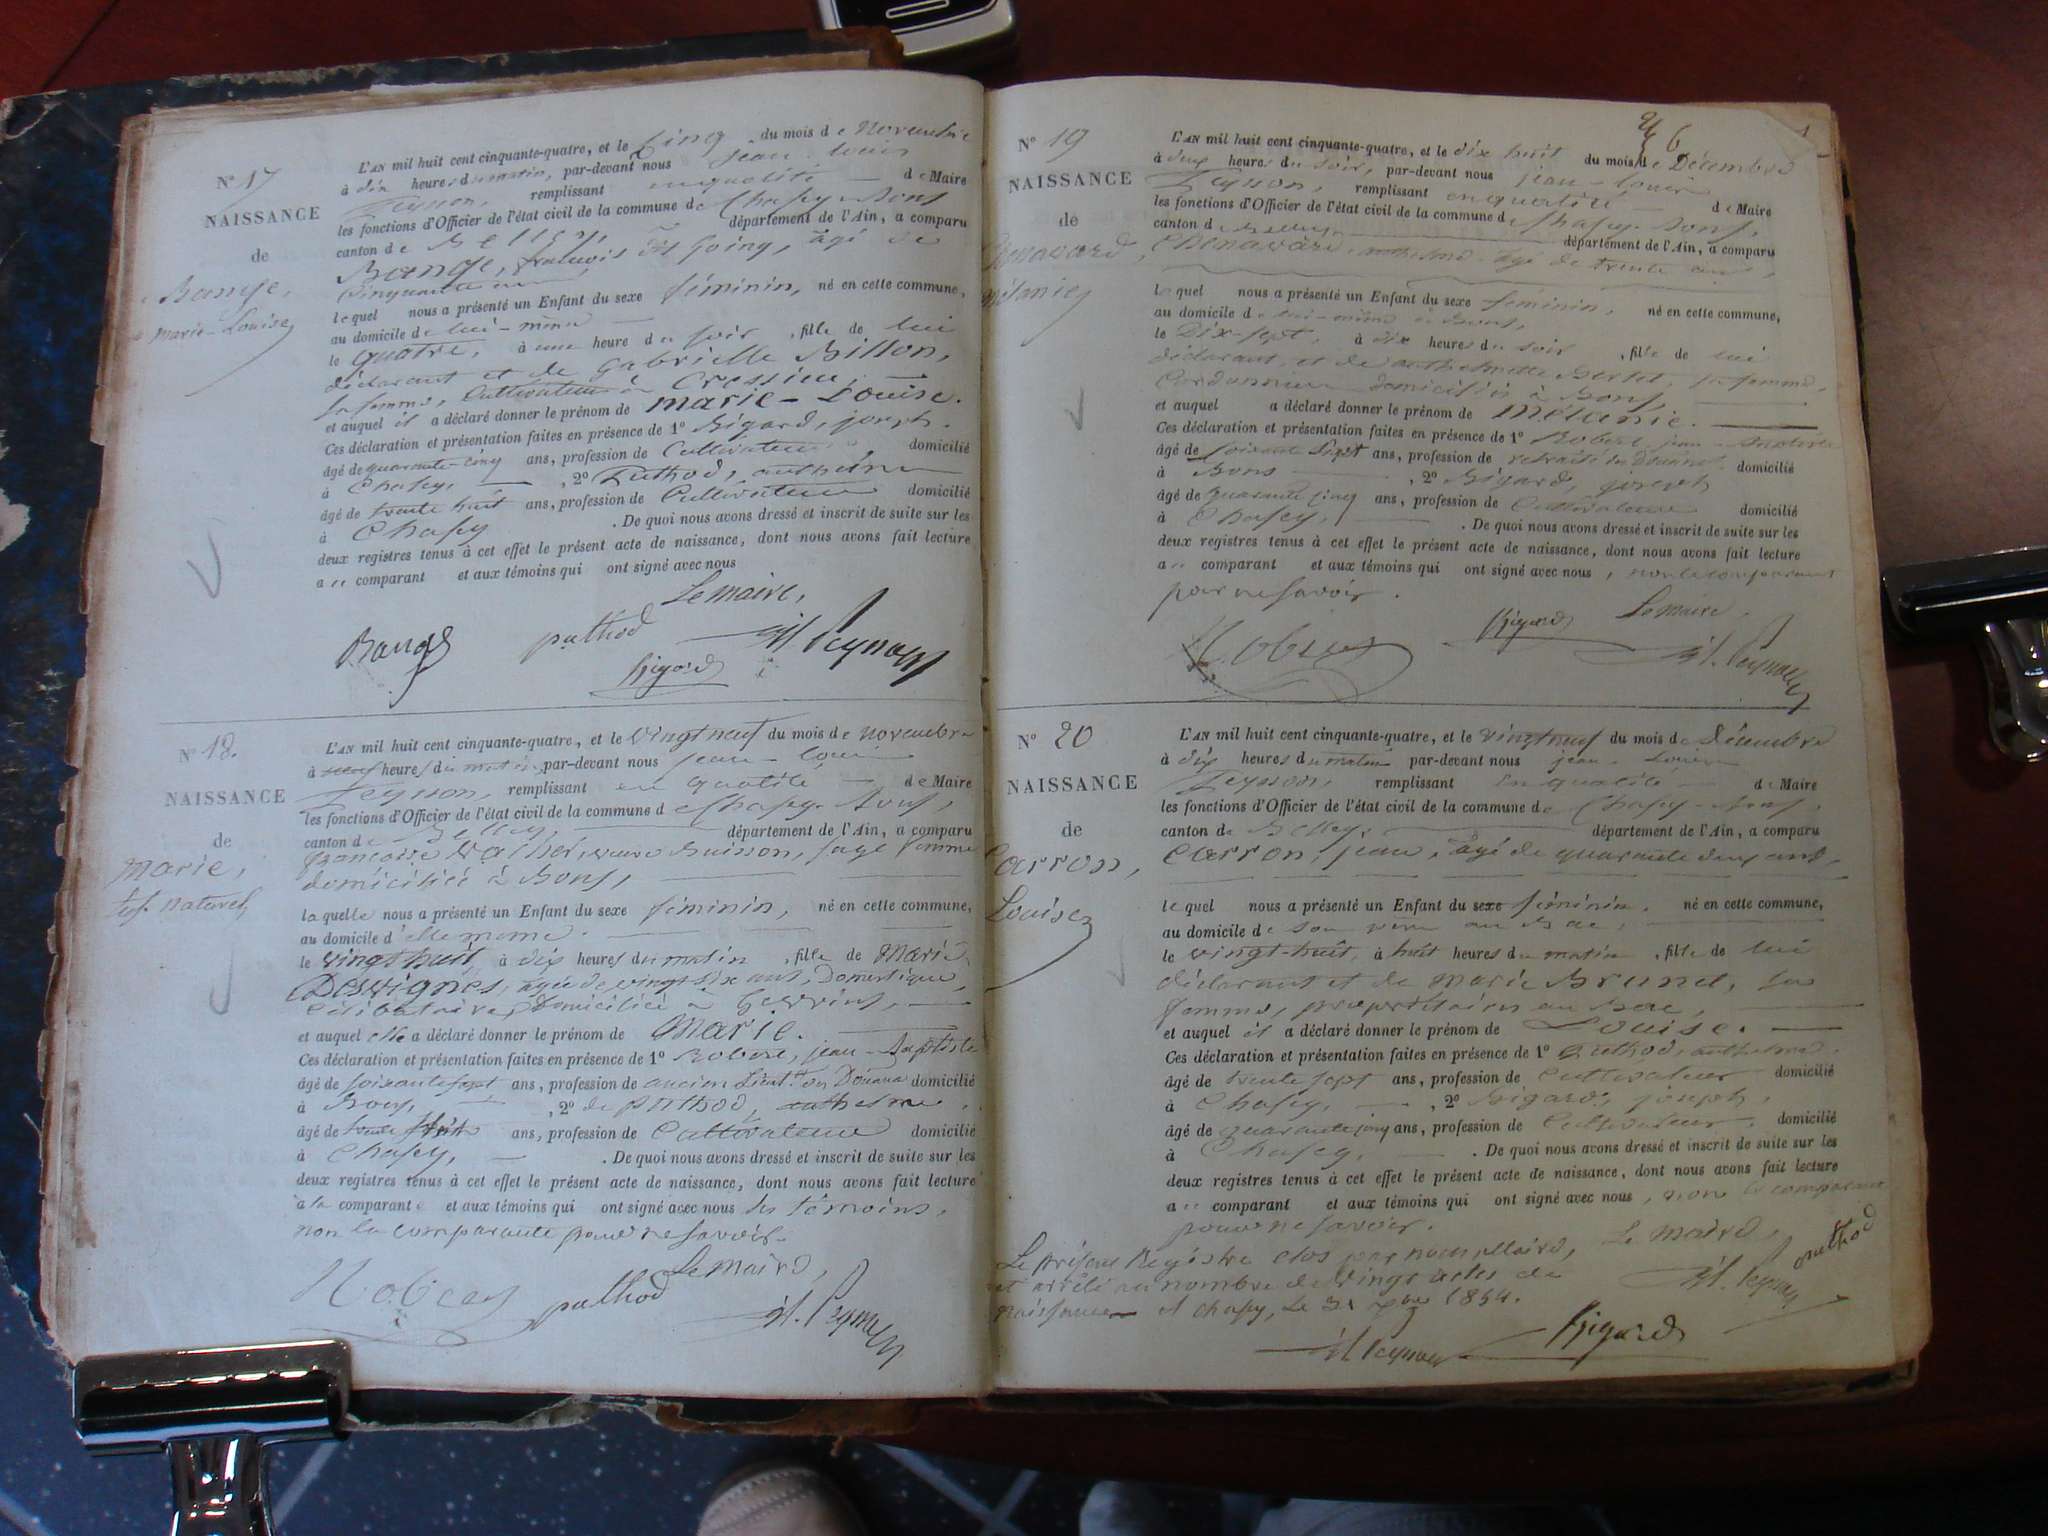 N° 17
NAISSANCE
de
Bange,
marie-Louise
L'AN mil huit cent cinquante-quatre, et le Cinq du mois de novembre
à dix heures du matin, par-devant nous jean-louis
remplissant en qualité de Maire
les fonctions d'Officier de l'état civil de la commune de Chasey-Bons
canton de Belley, département de l'Ain, a comparu
Bange, françois dit Going, âgé de
Cinquante un
lequel nous a présenté un Enfant du sexe féminin, né en cette commune,
au domicile de lui-même
le quatre, à une heure du soir, fille de lui
déclarant et de Gabrielle Billon,
sa femme, Cultivateurs à Cressieu,
et auquel il a déclaré donner le prénom de marie-Louise.
Ces déclaration et présentation faites en présence de 1° Bigard, joseph.
âgé de quarante-cinq ans, profession de Cultivateur, domicilié
à Chasey, 2° Puthod, anthelme
âgé de trente huit ans, profession de Cultivateur domicilié
à Chasey. De quoi nous avons dressé et inscrit de suite sur les
deux registres tenus à cet effet le présent acte de naissance, dont nous avons fait lecture
au comparant et aux témoins qui ont signé avec nous
Le maire,
Bange puthod
Bigard
N° 18.
NAISSANCE
de
Marie,
naturel
L'AN mil huit cent cinquante-quatre, et le vingt neuf du mois de novembre
à heures du matin, par-devant nous jean-louis
remplissant en qualité de Maire
les fonctions d'Officier de l'état civil de la commune de Chasey-Bons,
canton de Belley, département de l'Ain, a comparu
françoise veuve Buisson, sage femme
domiciliée à Bons,
laquelle nous a présenté un Enfant du sexe féminin, né en cette commune,
au domicile d'elle même.
le vingt huit, à dix heures du matin, fille de Marie
Desvignes, agée de vingt six ans, Domestique,
Célibataire, Domiciliée à
et auquel elle a déclaré donner le prénom de Marie.
Ces déclaration et présentation faites en présence de 1° Robert, jean-Baptiste
âgé de soixante sept ans, profession de ancien Lieut. des Douanes domicilié
à Bons, 2° de puthod, anthelme,
âgé de trente ans, profession de Cultivateur domicilié
à Chasey. De quoi nous avons dressé et inscrit de suite sur les
deux registres tenus à cet effet le présent acte de naissance, dont nous avons fait lecture
à la comparante et aux témoins qui ont signé avec nous les témoins,
non la comparante pour ne savoir.
Le maire,
Robert puthod
N° 19
NAISSANCE
de
Chenavard,
mélanie
6
L'AN mil huit cent cinquante-quatre, et le dix huit du mois de Décembre
à deux heures du soir, par-devant nous jean-louis
remplissant en qualité de Maire
les fonctions d'Officier de l'état civil de la commune de Chasey-Bons,
canton de Belley département de l'Ain, a comparu
Chenavard âgé de trente ans,
lequel nous a présenté un Enfant du sexe féminin, né en cette commune,
au domicile de lui-même à Bons,
le Dix-sept, à dix heures du soir, fille de lui
déclarant, et de anthelmette Bertet, sa femme,
Cordonnier domiciliés à Bons,
et auquel a déclaré donner le prénom de mélanie.
Ces déclaration et présentation faites en présence de 1° Robert, jean-Baptiste
âgé de soixante sept ans, profession de retraité des Douanes domicilié
à Bons, 2° Bigard, joseph
âgé de quarante cinq ans, profession de Cultivateur domicilié
à Chasey. De quoi nous avons dressé et inscrit de suite sur les
deux registres tenus à cet effet le présent acte de naissance, dont nous avons fait lecture
au comparant et aux témoins qui ont signé avec nous, non le comparant
pour ne savoir.
Bigard Le maire.
Robert
N° 20
NAISSANCE
de
Carron,
Louise
L'AN mil huit cent cinquante-quatre, et le vingt neuf du mois de Décembre
à dix heures du matin par-devant nous jean-louis
remplissant en qualité de Maire
les fonctions d'Officier de l'état civil de la commune de Chasey-Bons,
canton de Belley, département de l'Ain, a comparu
Carron, jean, âgé de quarante deux ans,
lequel nous a présenté un Enfant du sexe féminin, né en cette commune,
au domicile de son père au Bac,
le vingt-huit, à huit heures du matin, fille de lui
déclarant et de Marie Brunet, sa
femme, propriétaires au Bac,
et auquel il a déclaré donner le prénom de Louise.
Ces déclaration et présentation faites en présence de 1° Puthod, anthelme,
âgé de trente sept ans, profession de Cultivateur domicilié
à Chasey, 2° Bigard, joseph,
âgé de quarante cinq ans, profession de Cultivateur, domicilié
à Chasey. De quoi nous avons dressé et inscrit de suite sur les
deux registres tenus à cet effet le présent acte de naissance, dont nous avons fait lecture
au comparant et aux témoins qui ont signé avec nous, non le comparant
pour ne savoir.
Le maire, puthod
Le présent Registre clos par nous Maire,
et arrêté au nombre de Vingt actes de
naissances à Chasey, le 31 Xbre 1854.
Bigard